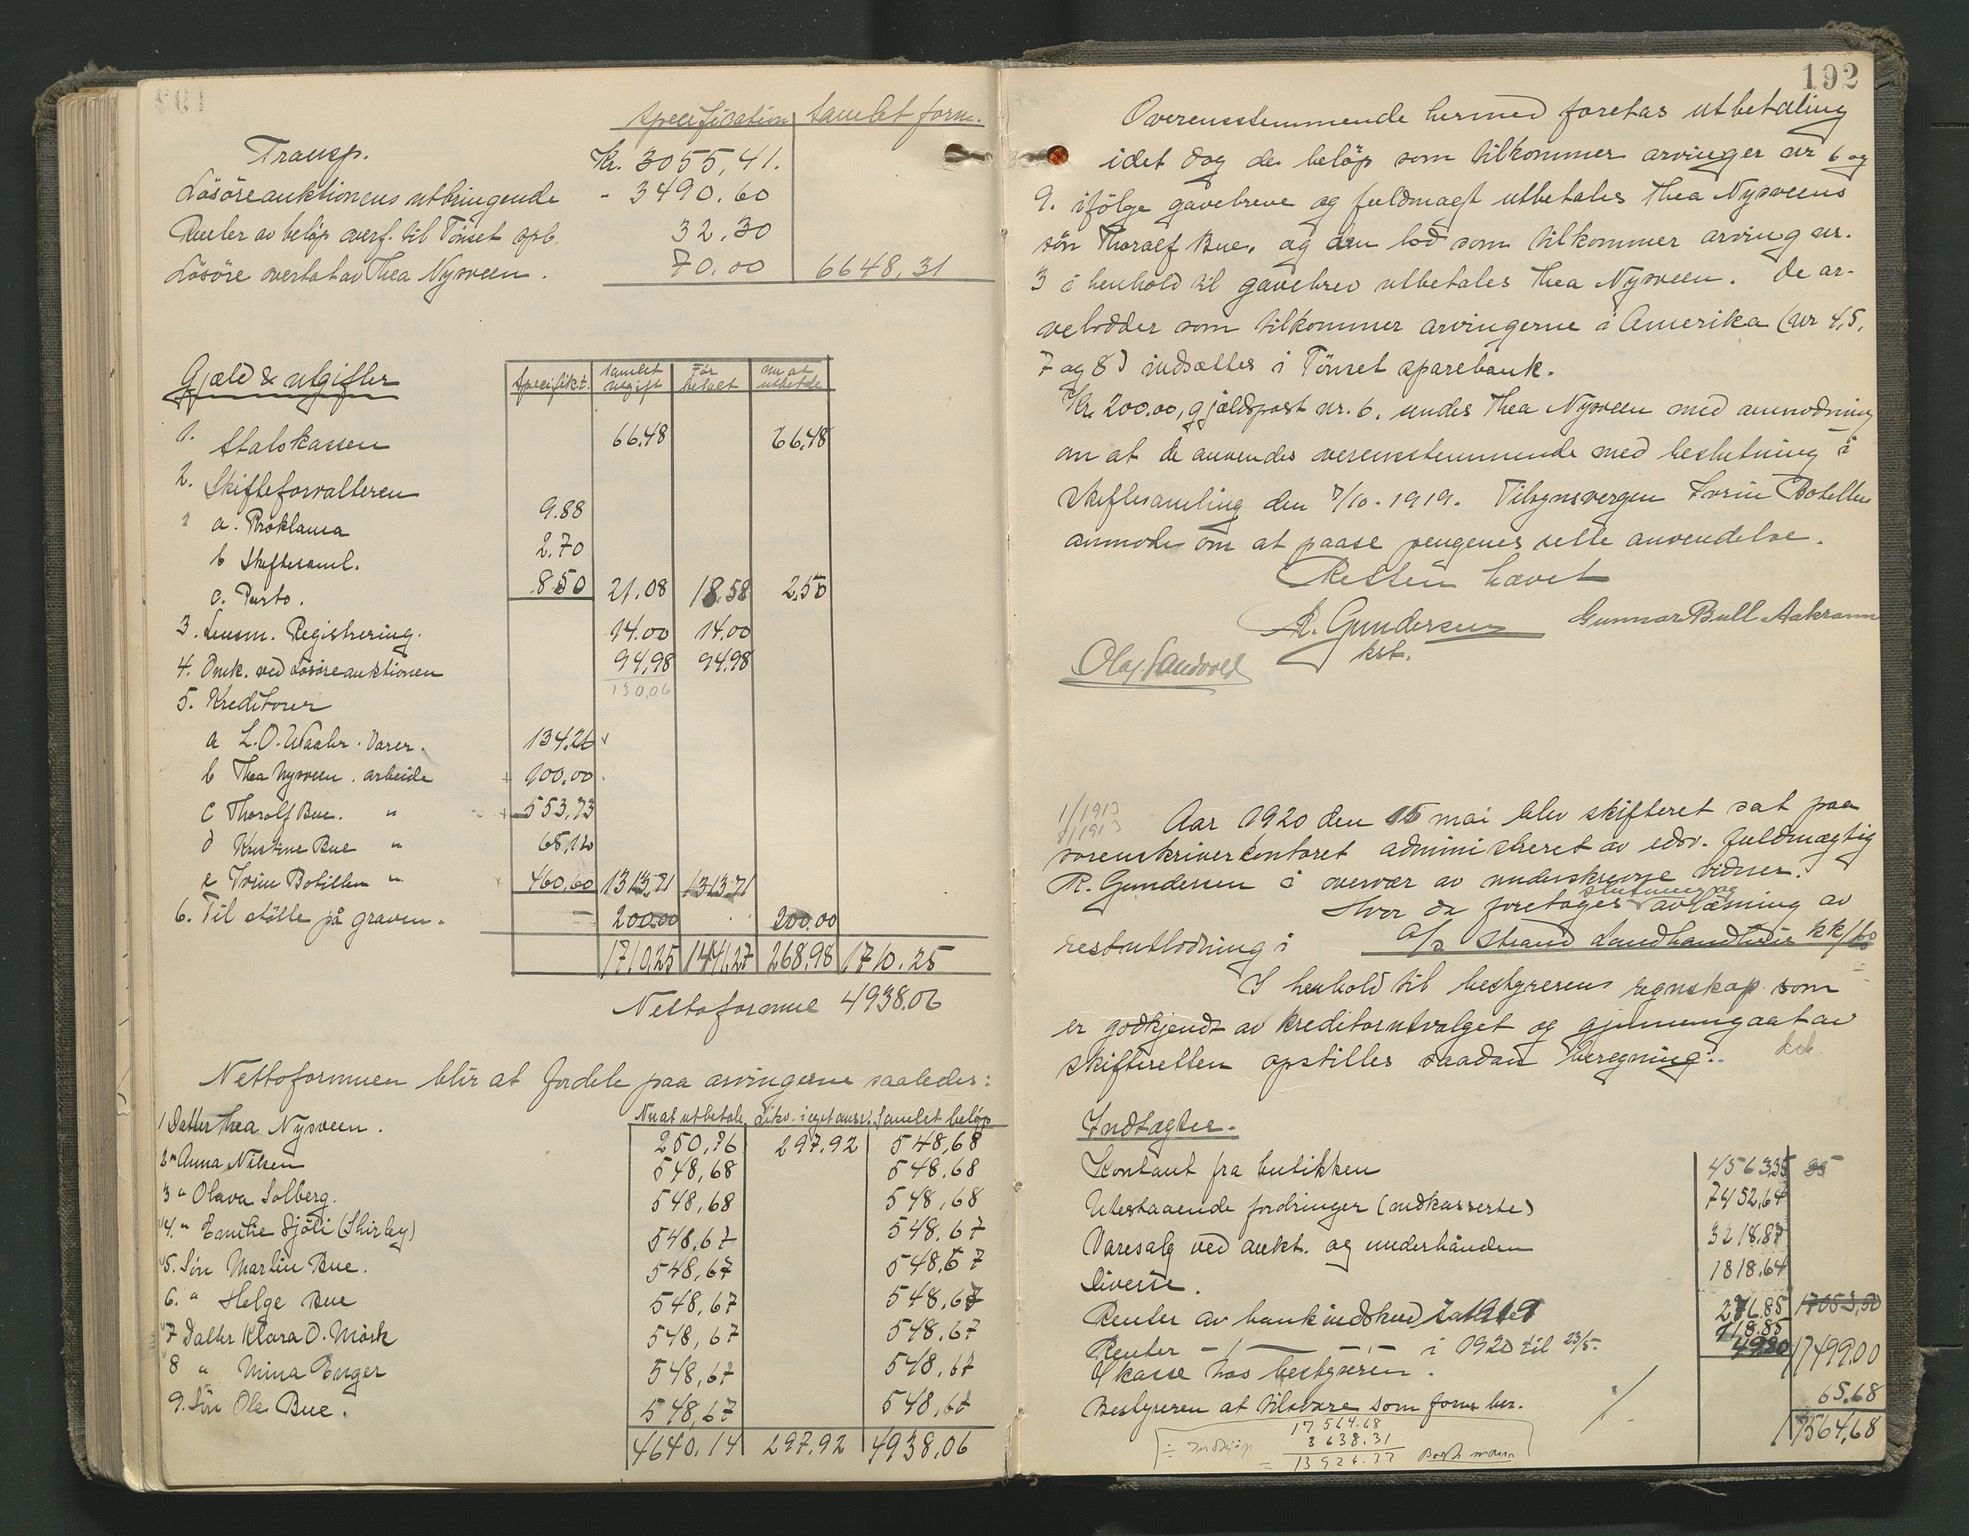 Specification Samlet form.
Transp. Kr. 3055,41.
Lösöreauktionens utbringende - 3490.60
Renter av beløp overf. til Tönset spb. 32.30
Lösöre overtat av Thea Nysveen. 70.00 6648,31
Gjæld & utgifter Specifikt. Samlet utgift Før betalt nu at utbetale
1. Statskassen 66.48 66,48
2. Skifteforvalteren
a. Proklama 9.88
b Skiftesaml. 2.70
c. Porto. 8.50 21.08 18.58 2.50
3. Lensm. Registrering. 14.00 14.00
4. Omk. ved Lösöreauktionen 94,98 94.98
130,06
5. Kreditorer
a L.O. Waaler. Varer. 134.26
b Thea Nysveen. arbeide 100.00
c Thoralf Bue. " 553,73
d Kristine Bue " 65,12
e Iver Botillen " 460,60 1313,71 1313.71
6. Til støtte på graven. 200.00 200.00
1710,25 1441,27 268,98 1710.25
Nettoformue 4938.06
Nettoformuen blir at fordele paa arvingerne saaledes:
Nu at utbetale Likv. i eget ansv. Samlet beløp
1 Datter Thea Nysveen. 250,76 297.92 548,68
2 " Anna Nilsen 548,68 548.68
3 " Olava Solberg. 548,68 548,68
4. " Emilie Sjöli (Shirley) 548,67 548.67
5. Søn Martin Bue. 548,67 548,67
6. " Helge Bue 548,67 548,67
7 Datter Klara O. Mörk 548,67 548,67
8 " Mina Enger 548,67 548,67
9. Søn Ole Bue. 548,67 548,67
4640,14 297,92 4938.06
192
Overensstemmende hermed foretas utbetaling
idet dog de beløp som tilkommer arvinger nr 6 og
9. ifölge gavebreve og fuldmagt utbetales Thea Nysveens
sön Thoralf Bue, og den lod som tilkommer arving nr.
3 i henhold til gavebrev utbetales Thea Nysveen. De ar-
velodder som tilkommer arvingerne i Amerika (nr 4,5,
7 og 8) indsættes i Tönset sparebank.
Kr. 200.00, gjældspost nr. 6. sendes Thea Nysveen med anmodning
om at de anvendes overensstemmende med beslutning i
skiftesamling den 7/10-1919. Tilsynsvergen Botillen
anmodes om at paase pengenes rette anvendelse.
Retten hævet
R. Gundersen Gunnar Bull Aakrann
kst.
Olaf Sandvold
1/1913
Aar 1920 den 15 mai blev skifteret sat paa
sorenskriverkontoret administreret av edsv. fuldmægtig
R. Gundersen i overvær av underskrevne vidner.
Hvor da foretages slutning og avlæsning av
restutlodning i a/s Strand Landhandleri kk/bo
I henhold til bestyrerens regnskap som
er godkjendt av kreditorutvalget og gjennemgaat av
skifteretten opstilles saadan beregning:
Indtægter.
Kontant fra butikken 4563,35
Utestaaende fordringer (indkasserte) 7452,64
Varesalg ved aukt. og underhånden 3218,87
Diverse. 1818,64
Renter av bankindskud i 1919 17053,50
Renter -"- i 1920 til 23/5. 17499,00
I kasse hos bestyreren.
Bestyreren at tilsvare som form. ber. 65.68
17564,68
17564.68
÷ Indkjøp 3638.31
= 13926.37